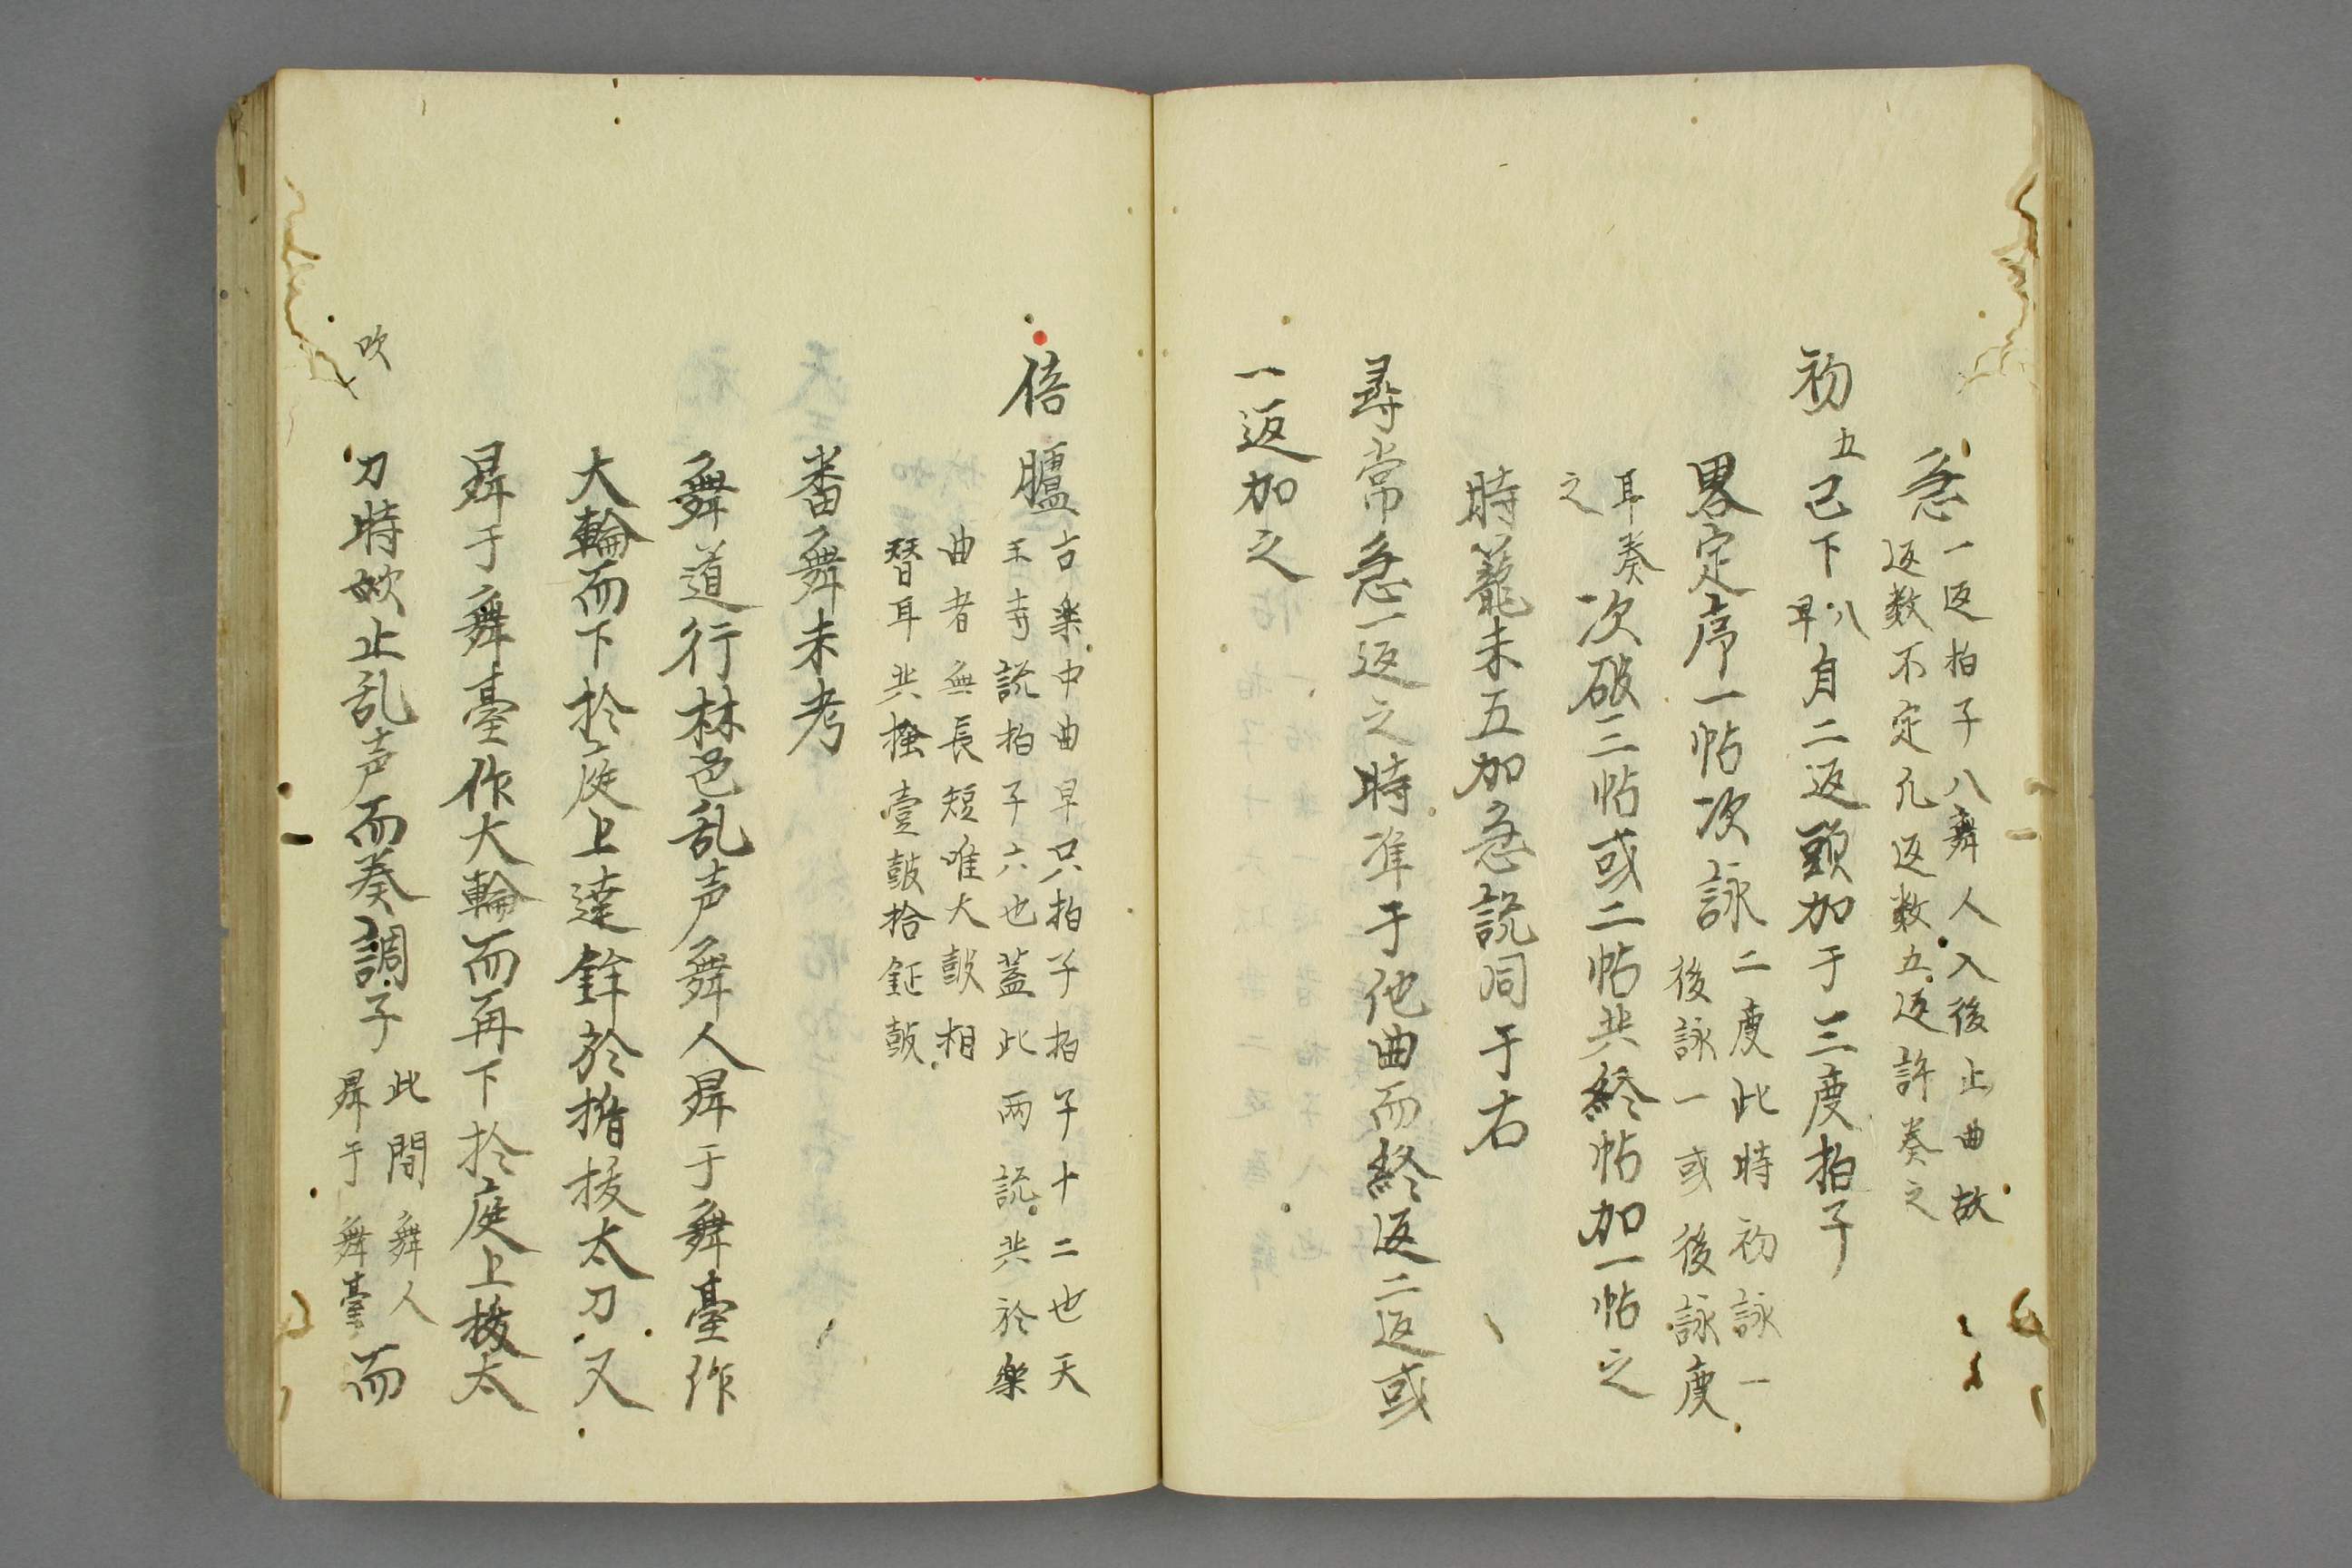 急
一返拍子八舞人入後止曲故
返数不定凡返数五返許奏之
初五已下八早自二返頭加于三度拍子
畧定序一帖次詠
二度此時初詠一
後詠一或後詠度
耳奏
之
次破三帖或二帖共終帖加一帖之
時籠未五加急説同于右
尋常急一返之時准于他曲而終返二返或
一返加之
倍臚
古楽中曲早只拍子拍子十二也天
王寺説拍子六也蓋此両説共於楽
曲者無長短唯大皷相
替耳共搔壹皷拾鉦皷
番舞未考
舞道行林邑乱声舞人舁于舞臺作
大輪而下於庭上達鉾於楯抜太刀又
舁于舞臺作大輪而再下於庭上抜太
吹
刀時欤止乱声而奏調子
此間舞人
舁于舞臺
而